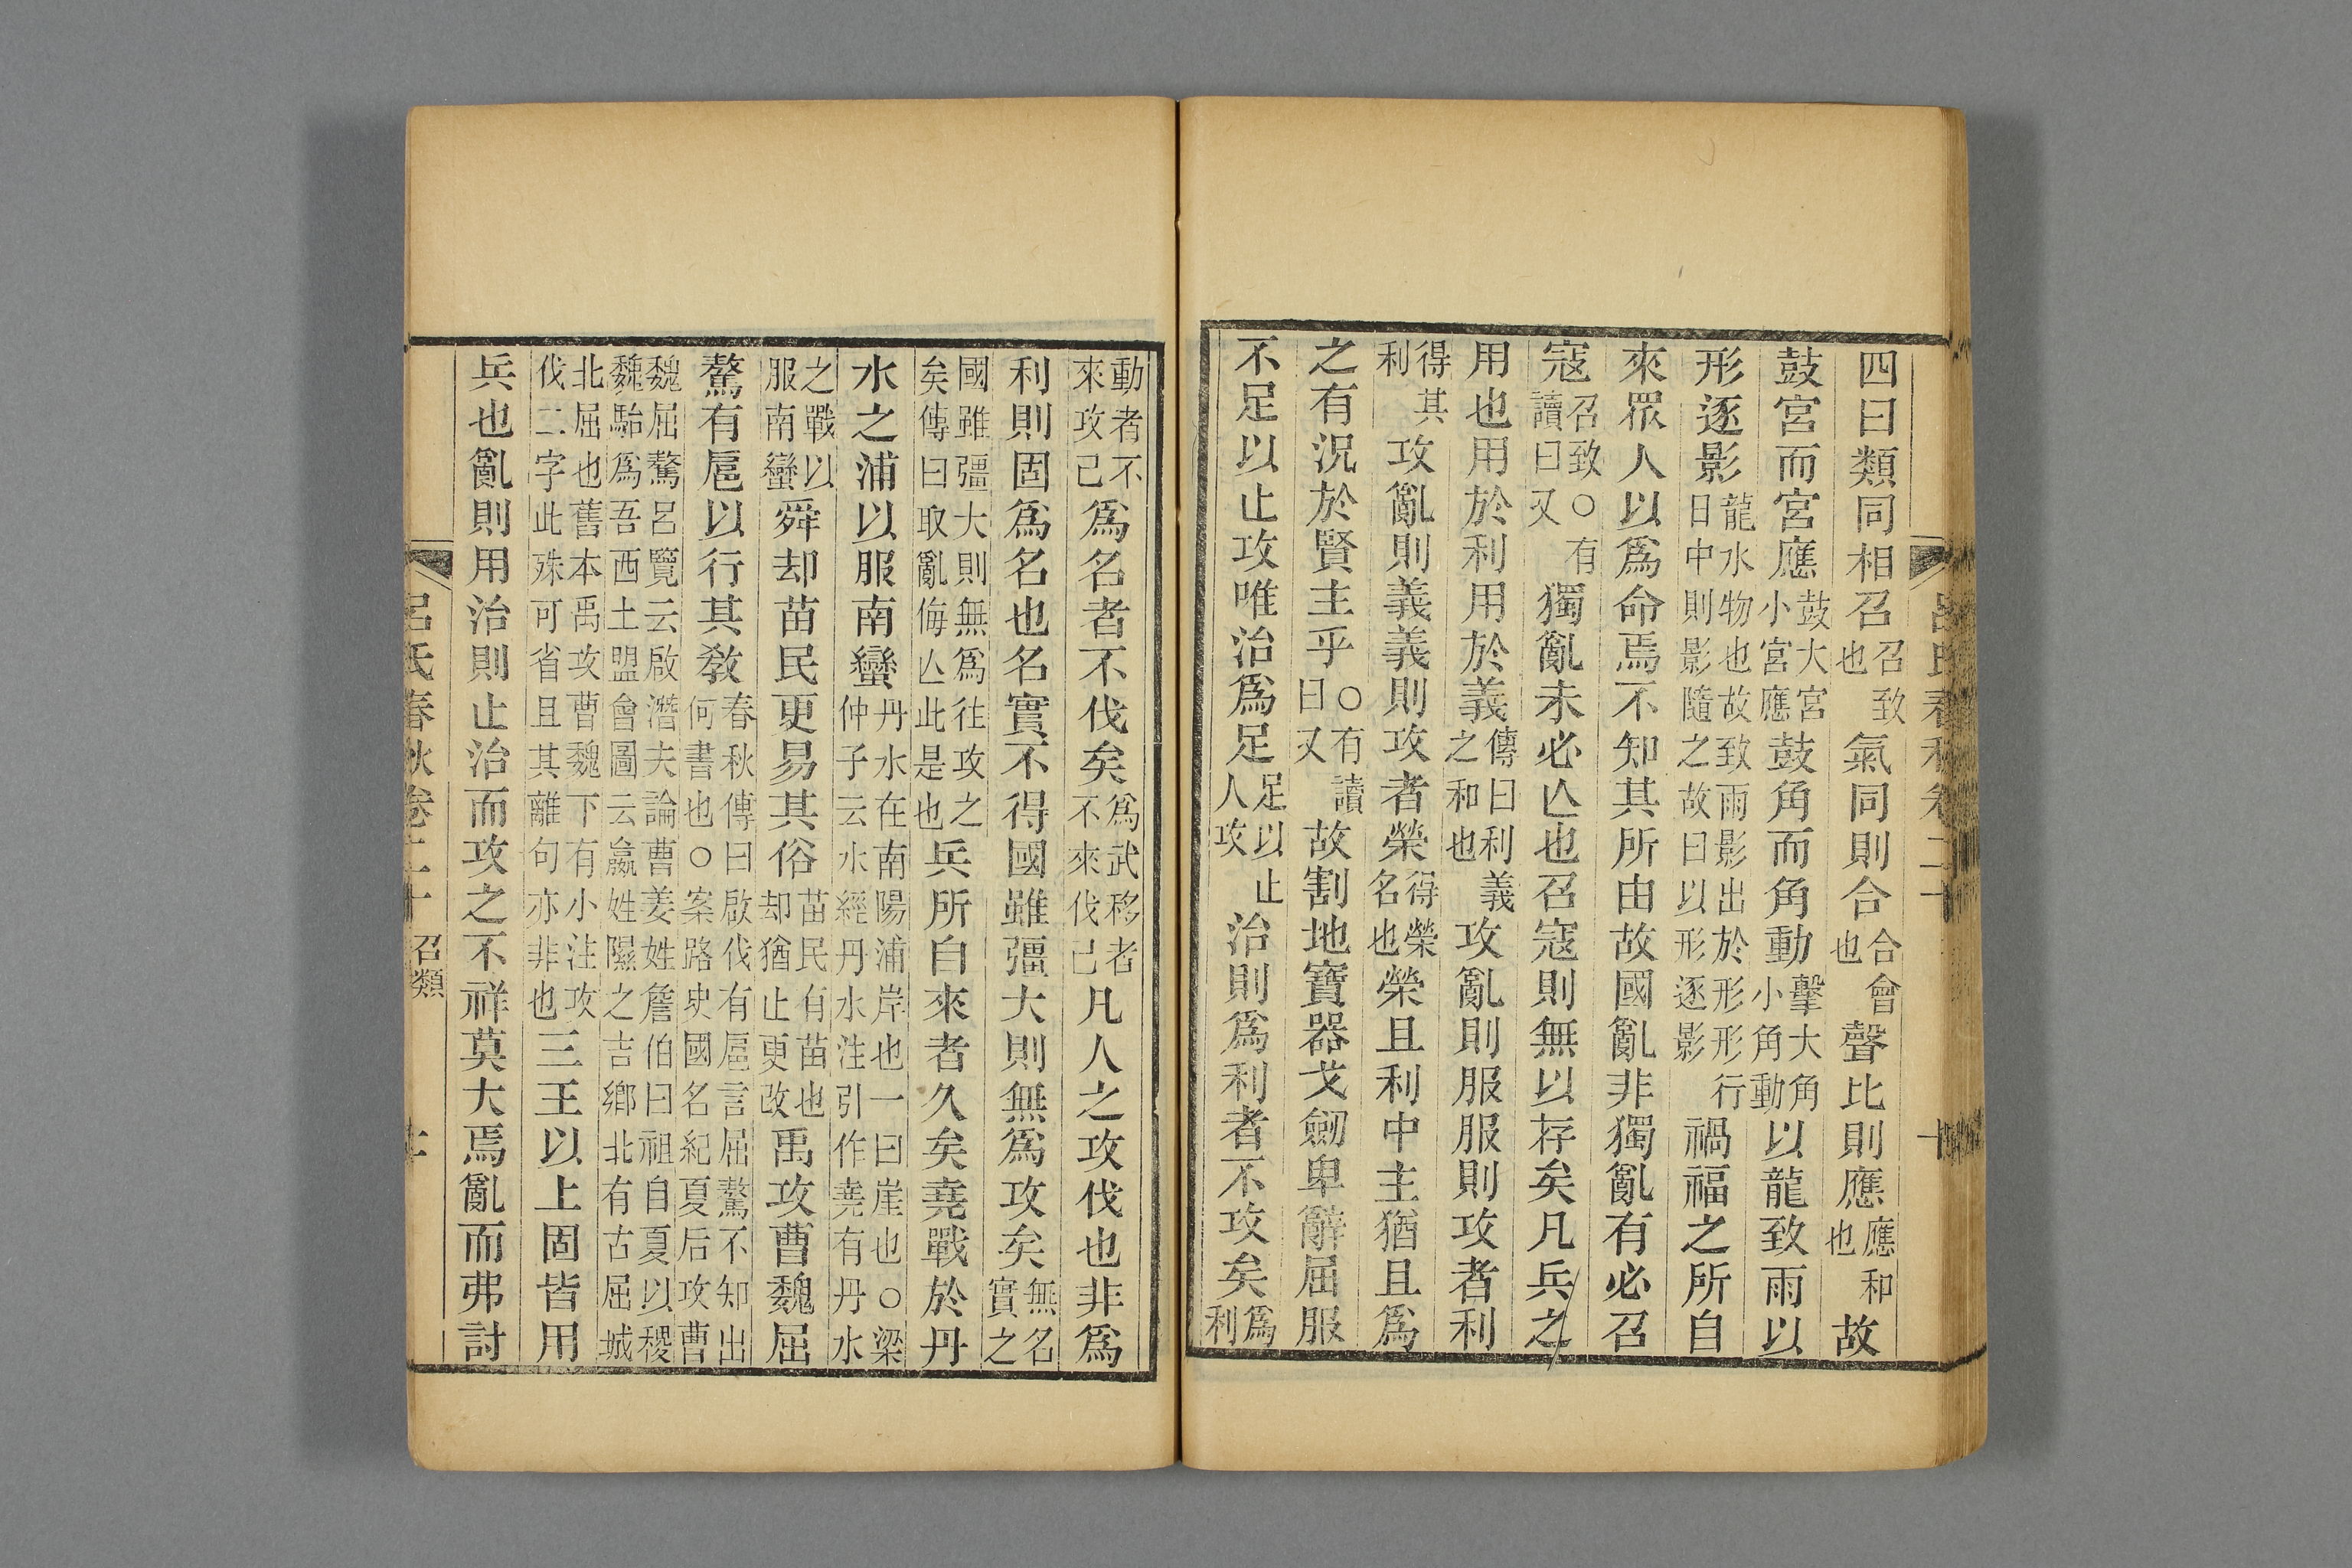 四曰類同相召召致也氣同則合合會也聲比則應應和也故
鼓宮而宮應鼓大宮小宮應鼓角而角動擊大角小角動以龍致雨以
形逐影龍水物也故致雨影出於形形行日中則影隨之故曰以形逐影禍福之所自
來眾人以爲命焉不知其所由故國亂非獨亂有必召
寇召致○有讀曰又獨亂未必亾也召寇則無以存矣凡兵之
用也用於利用於義傳曰利義之和也攻亂則服服則攻者利
得其利攻亂則義義則攻者榮得榮名也榮且利中主猶且爲
之有況於賢主乎○有讀曰又故割地寶器戈劒卑辭屈服
不足以止攻唯治爲足足以止人攻治則爲利者不攻矣爲利
動者不來攻己爲名者不伐矣爲武移者不來伐己凡人之攻伐也非爲
利則固爲名也名實不得國雖彊大則無爲攻矣無名實之
國雖彊大則無爲往攻之矣傳曰取亂侮亾此是也兵所自來者久矣堯戰於丹
水之浦以服南蠻丹水在南陽浦岸也一曰崖也○梁仲子云水經丹水注引作堯有丹水
之戰以服南蠻舜却苗民更易其俗苗民有苗也却猶止更改禹攻曹魏屈
驁有扈以行其敎春秋傳曰啟伐有扈言屈驁不知出何書也○案路史國名紀夏后攻曹
魏屈驁呂覽云啟潛夫論曹姜姓詹伯曰祖自夏以稷魏駘爲吾西土盟會圖云嬴姓隰之吉鄉北有古屈城
北屈也舊本禹攻曹魏下有小注攻伐二字此殊可省且其離句亦非也三王以上固皆用
兵也亂則用治則止治而攻之不祥莫大焉亂而弗討
呂氏春秋卷二十
召類